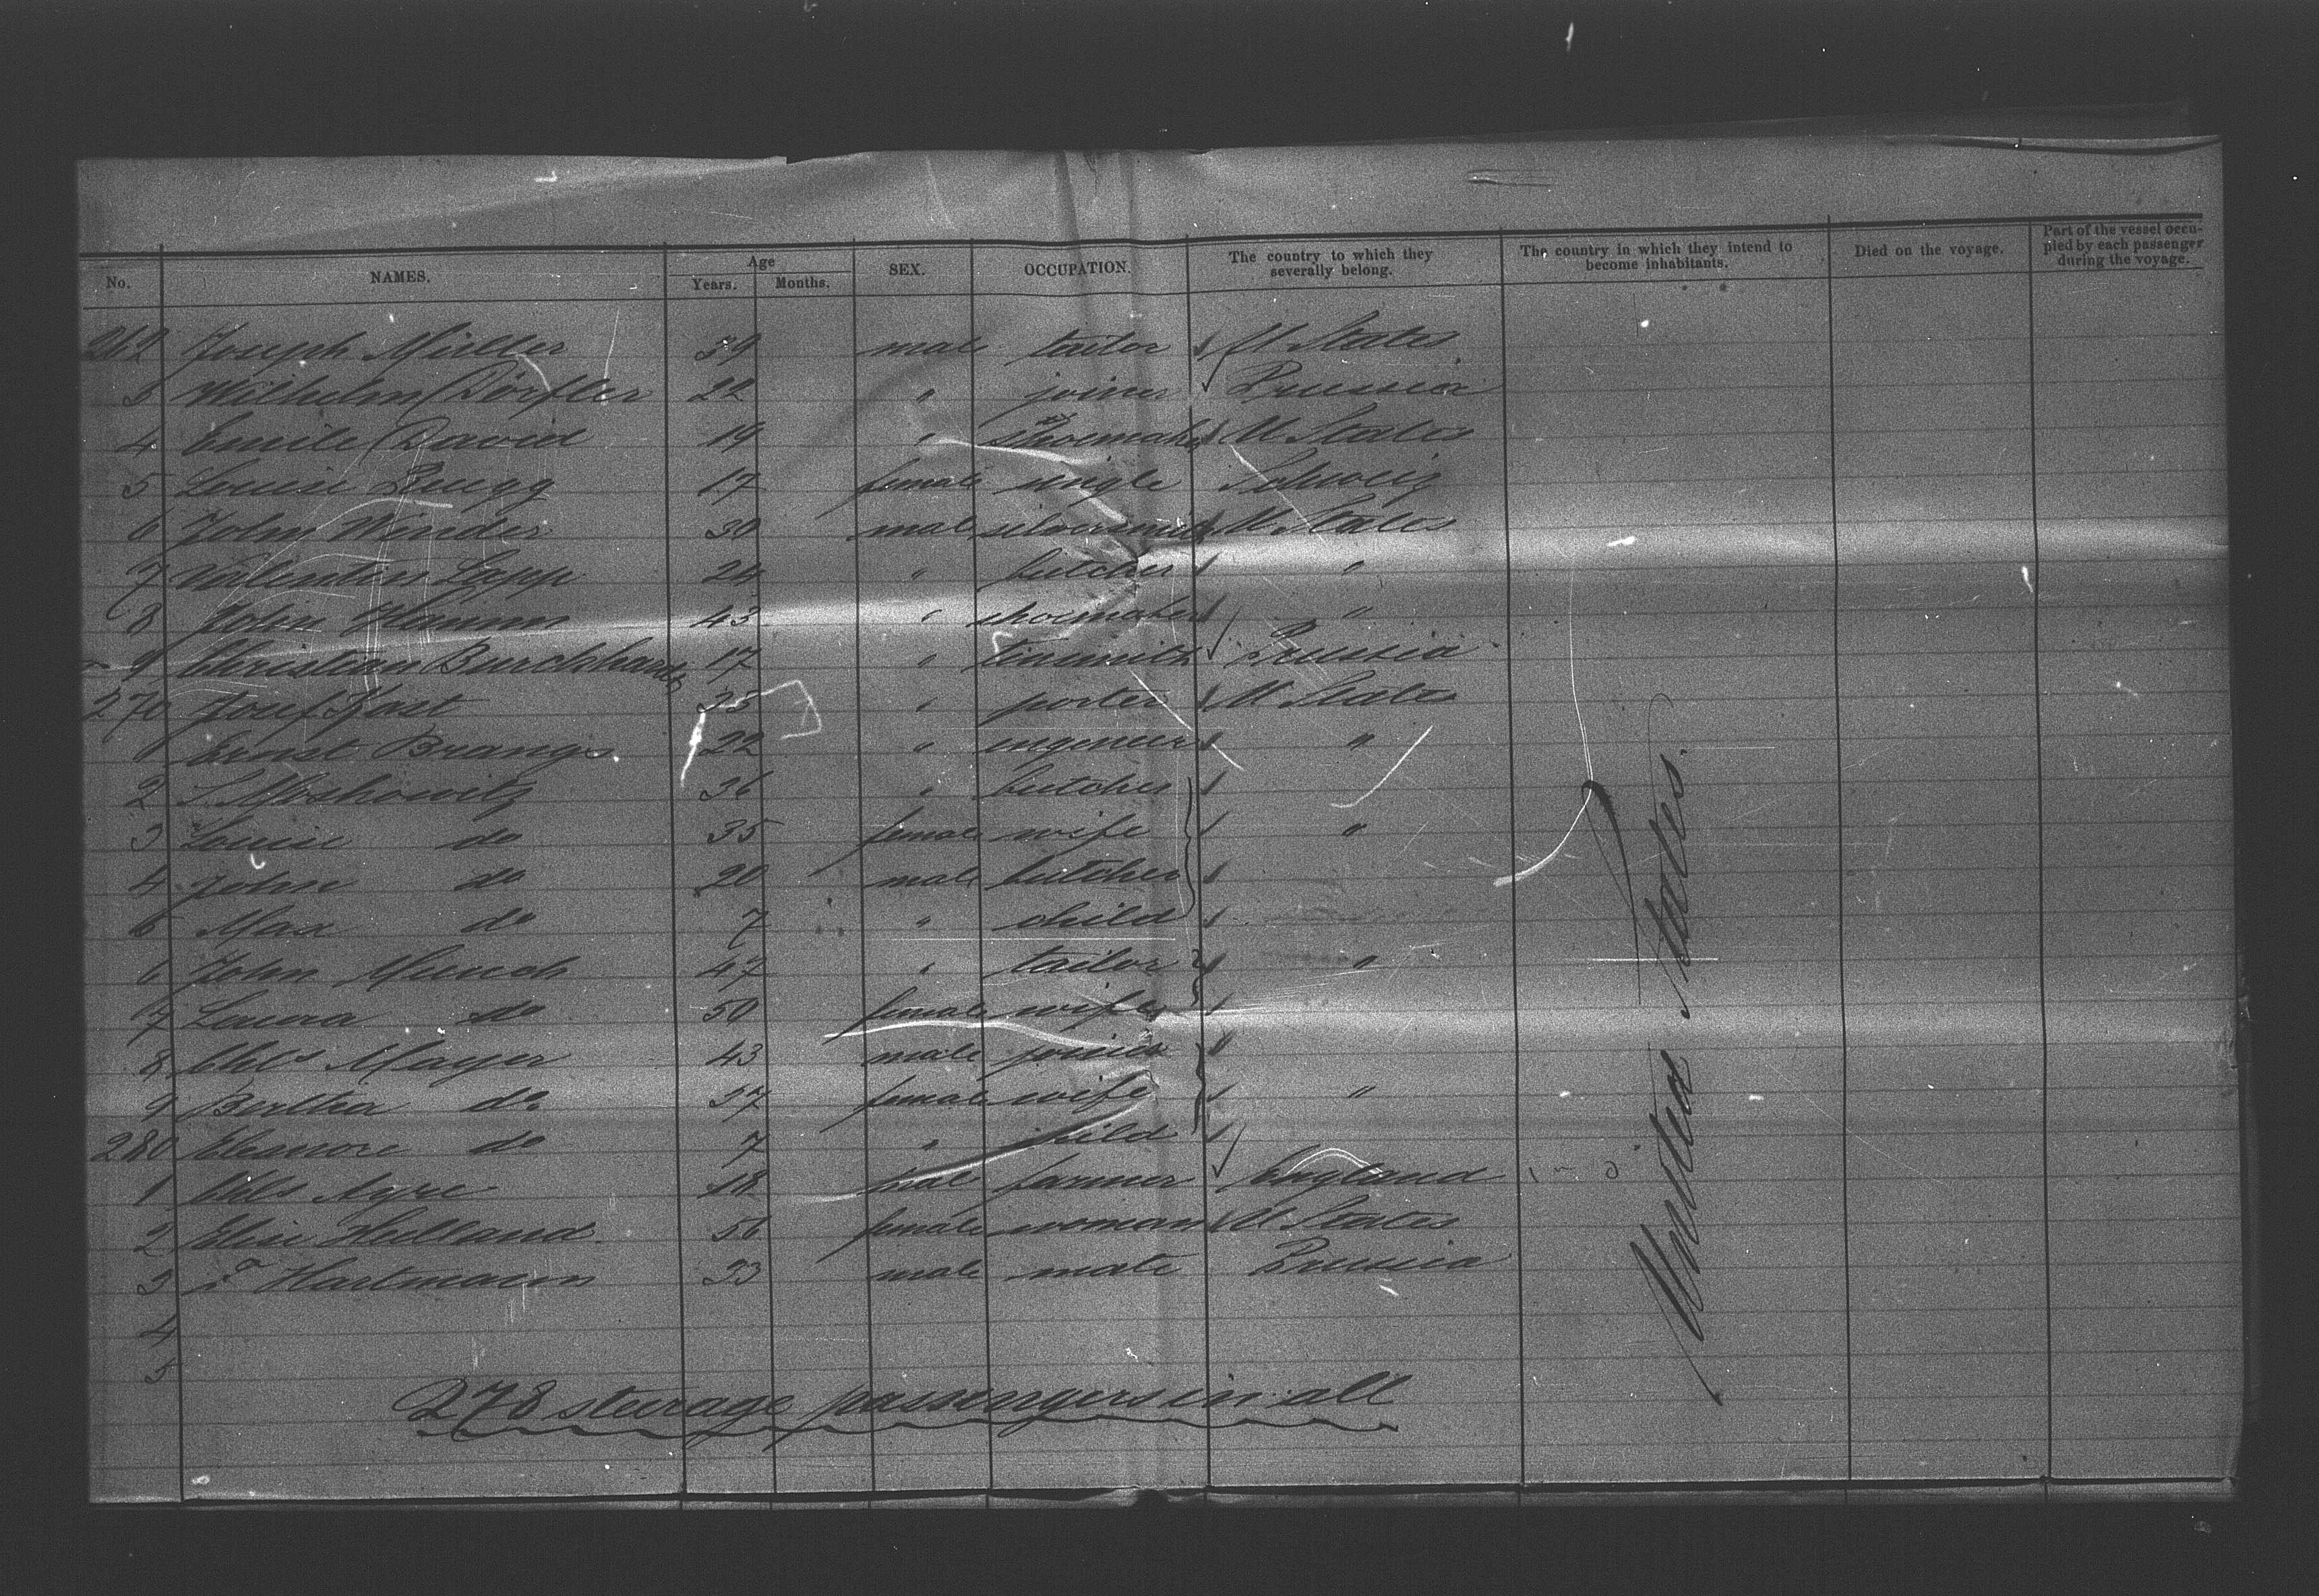 No. NAMES. Age Years. Months. SEX. OCCUPATION. The country to which they severally belong. The country in which they intend to become inhabitants. Died on the voyage. Part of the vessel occupied by each passenger during the voyage.
262 Joseph Müller 39 male tailor U States
3 Wilhelm Dorfler 22 " joiner Prussia
4 Emile David 19 " shoemaker U States
5 Louise Brugg 17 female single Schweiz
6 John Wender 30 male silversmith U States
7 Valentin Lapp 24 " butcher "
8 John Hamm 43 " shoemaker "
9 Christian Burckhardt 17 " tinsmith Prussia
270 Josef Kast 35 " porter U States
1 Ernst Brangs 22 " engineer "
2 S. Moskowitz 36 " butcher
3 Louise do 35 female wife "
4 John do 20 male butcher
6 Max do 7 " child
6 John Munch 47 " tailor "
7 Laura do 50 female wife
8 Chls Mayer 43 male joiner
9 Bertha do 37 female wife "
280 Eleonore do 7 " child
1 Chls Ayre 18 male farmer England
2 Elise Holland 56 female woman U States
3 Hartmann 33 male mate Prussia
4
5
United States.
278 steerage passengers in all